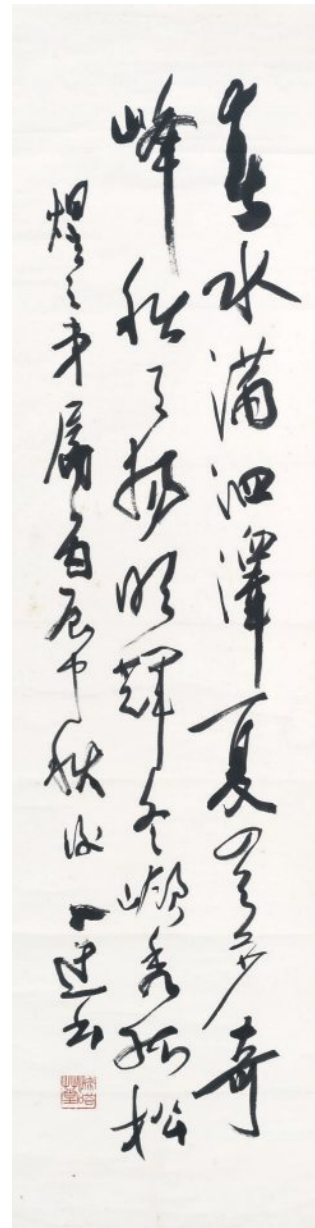 春水满泗澤夏雲多奇
峰秋月揚明輝冬嶺秀孤松
煌之弟屬丙辰中秋後